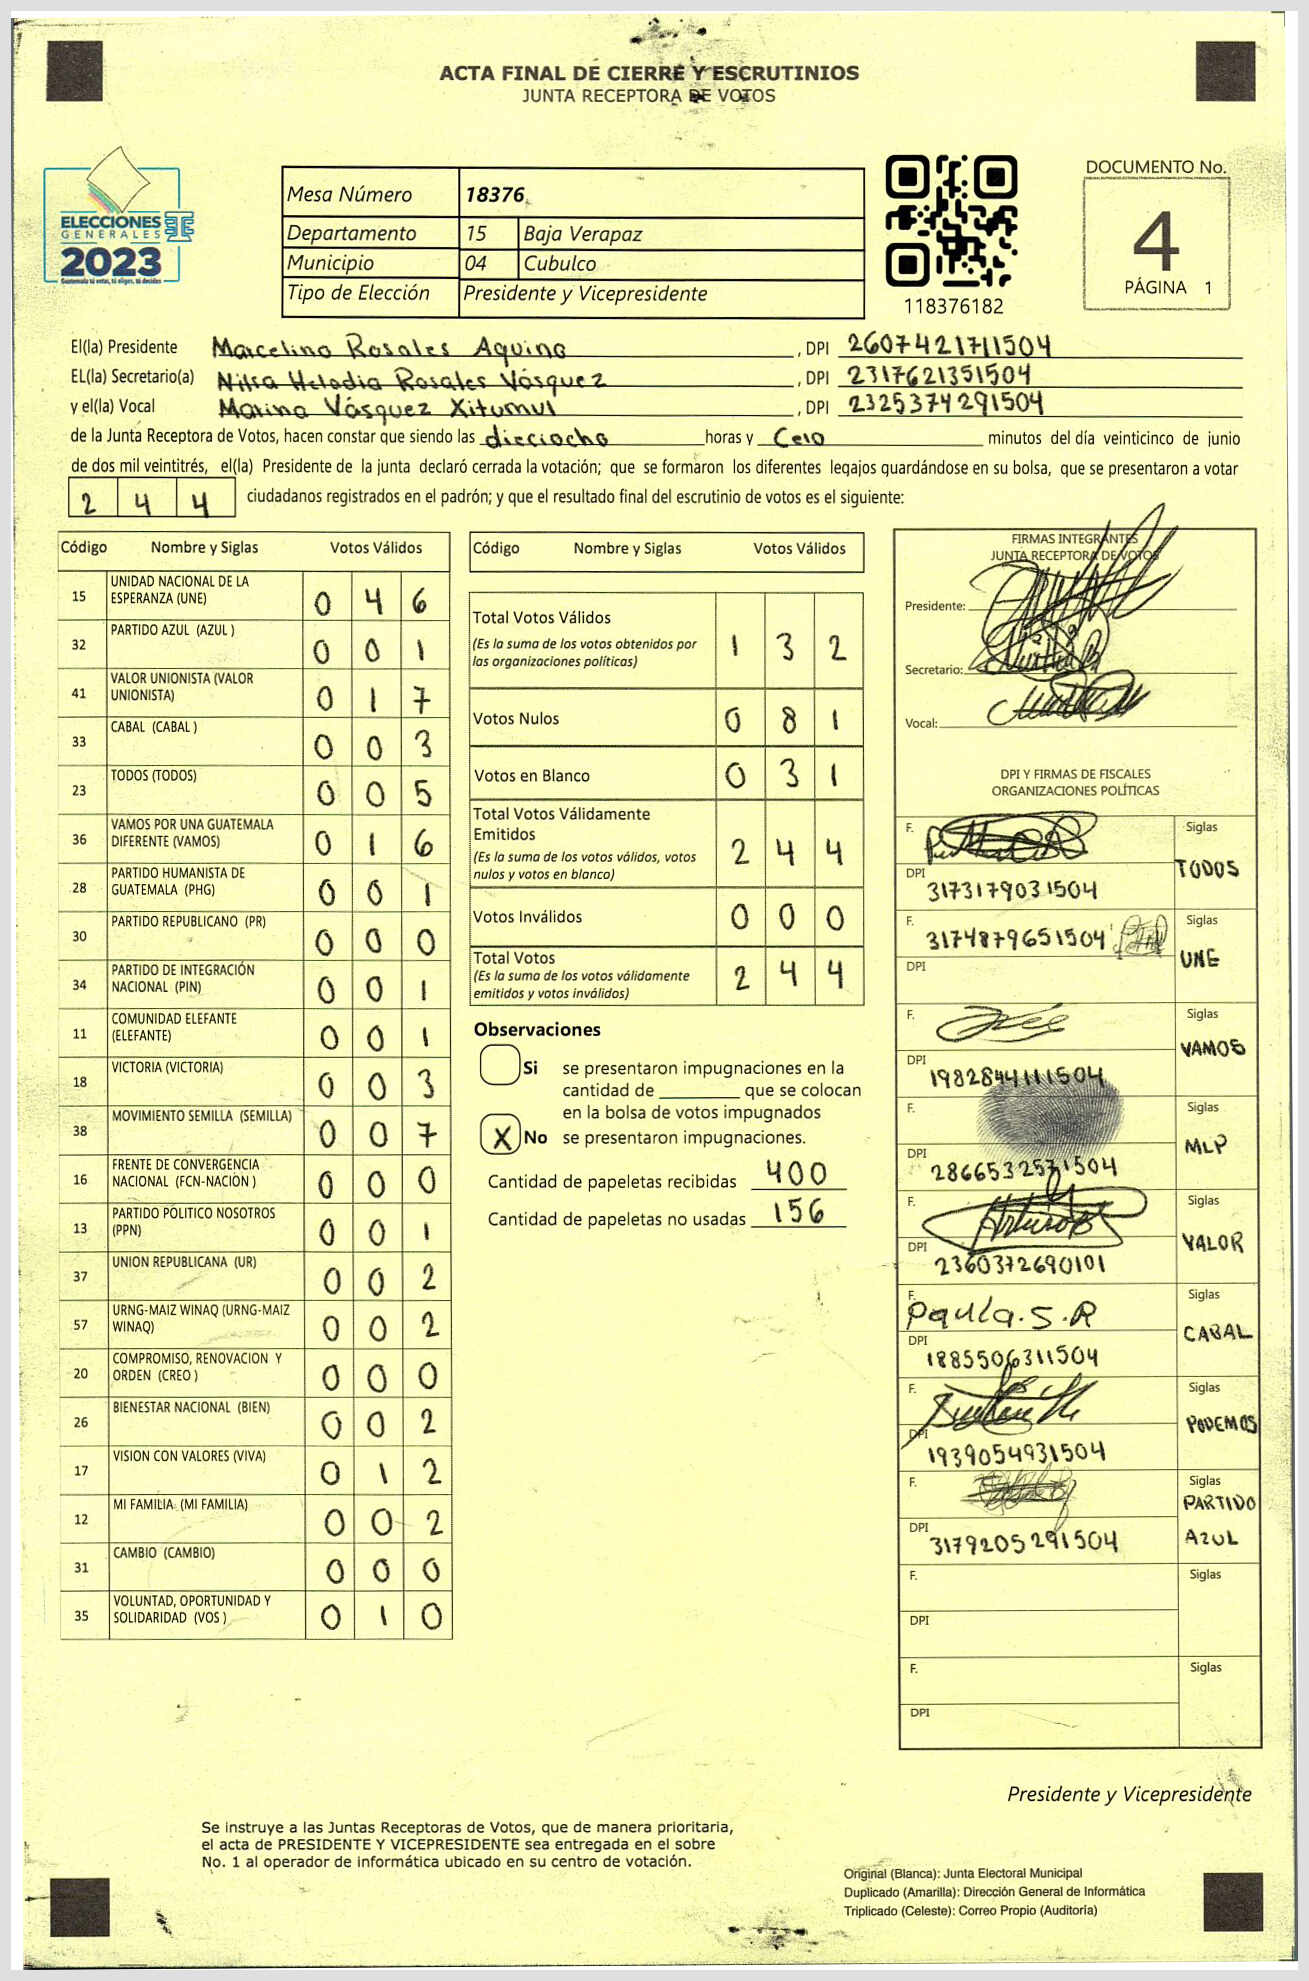 ACTA FINAL DE CIERRE Y ESCRUTINIOS
JUNTA RECEPTORA DE VOTOS
ELECCIONES
GENERALES
2023
Guatemala tú votas, tú eliges, tú decides
Mesa Número 18376
Departamento 15 Baja Verapaz
Municipio 04 Cubulco
Tipo de Elección Presidente y Vicepresidente
118376182
DOCUMENTO No.
4
PÁGINA 1
El(la) Presidente Marcelino Rosales Aquino, DPI 2607421711504
EL(la) Secretario(a) Nilsa Helodia Rosales Vásquez, DPI 2317621351504
y el(la) Vocal Marina Vásquez Xitumul, DPI 2325374291504
de la Junta Receptora de Votos, hacen constar que siendo las dieciocho horas y Cero minutos del día veinticinco de junio
de dos mil veintitrés, el(la) Presidente de la junta declaró cerrada la votación; que se formaron los diferentes legajos guardándose en su bolsa, que se presentaron a votar
2 4 4 ciudadanos registrados en el padrón; y que el resultado final del escrutinio de votos es el siguiente:
Código Nombre y Siglas Votos Válidos
15 UNIDAD NACIONAL DE LA
ESPERANZA (UNE) 0 4 6
32 PARTIDO AZUL (AZUL ) 0 0 1
41 VALOR UNIONISTA (VALOR
UNIONISTA) 0 1 7
33 CABAL (CABAL ) 0 0 3
23 TODOS (TODOS) 0 0 5
36 VAMOS POR UNA GUATEMALA
DIFERENTE (VAMOS) 0 1 6
28 PARTIDO HUMANISTA DE
GUATEMALA (PHG) 0 0 1
30 PARTIDO REPUBLICANO (PR) 0 0 0
34 PARTIDO DE INTEGRACIÓN
NACIONAL (PIN) 0 0 1
11 COMUNIDAD ELEFANTE
(ELEFANTE) 0 0 1
18 VICTORIA (VICTORIA) 0 0 3
38 MOVIMIENTO SEMILLA (SEMILLA) 0 0 7
16 FRENTE DE CONVERGENCIA
NACIONAL (FCN-NACION ) 0 0 0
13 PARTIDO POLITICO NOSOTROS
(PPN) 0 0 1
37 UNION REPUBLICANA (UR) 0 0 2
57 URNG-MAIZ WINAQ (URNG-MAIZ
WINAQ) 0 0 2
20 COMPROMISO, RENOVACION Y
ORDEN (CREO ) 0 0 0
26 BIENESTAR NACIONAL (BIEN) 0 0 2
17 VISION CON VALORES (VIVA) 0 1 2
12 MI FAMILIA (MI FAMILIA) 0 0 2
31 CAMBIO (CAMBIO) 0 0 0
35 VOLUNTAD, OPORTUNIDAD Y
SOLIDARIDAD (VOS ) 0 1 0
Código Nombre y Siglas Votos Válidos
Total Votos Válidos
(Es la suma de los votos obtenidos por
las organizaciones políticas) 1 3 2
Votos Nulos 0 8 1
Votos en Blanco 0 3 1
Total Votos Válidamente
Emitidos
(Es la suma de los votos válidos, votos
nulos y votos en blanco) 2 4 4
Votos Inválidos 0 0 0
Total Votos
(Es la suma de los votos válidamente
emitidos y votos inválidos) 2 4 4
Observaciones
Si se presentaron impugnaciones en la
cantidad de ________ que se colocan
en la bolsa de votos impugnados
X No se presentaron impugnaciones.
Cantidad de papeletas recibidas 400
Cantidad de papeletas no usadas 156
FIRMAS INTEGRANTES
JUNTA RECEPTORA DE VOTOS
Presidente:
Secretario:
Vocal:
DPI Y FIRMAS DE FISCALES
ORGANIZACIONES POLÍTICAS
F. Siglas
TODOS
DPI 3173179031504
F. 3174879651504 Siglas
UNE
DPI
F. Siglas
VAMOS
DPI 1982844111504
F. Siglas
MLP
DPI 2866532571504
F. Arturo Siglas
VALOR
DPI 2360372690101
F. Paula.S.R Siglas
CABAL
DPI 1885506311504
F. Siglas
PODEMOS
DPI 1939054931504
F. Siglas
PARTIDO
AZUL
DPI 3179205291504
F. Siglas
DPI
F. Siglas
DPI
Presidente y Vicepresidente
Se instruye a las Juntas Receptoras de Votos, que de manera prioritaria,
el acta de PRESIDENTE Y VICEPRESIDENTE sea entregada en el sobre
No. 1 al operador de informática ubicado en su centro de votación.
Original (Blanca): Junta Electoral Municipal
Duplicado (Amarilla): Dirección General de Informática
Triplicado (Celeste): Correo Propio (Auditoría)